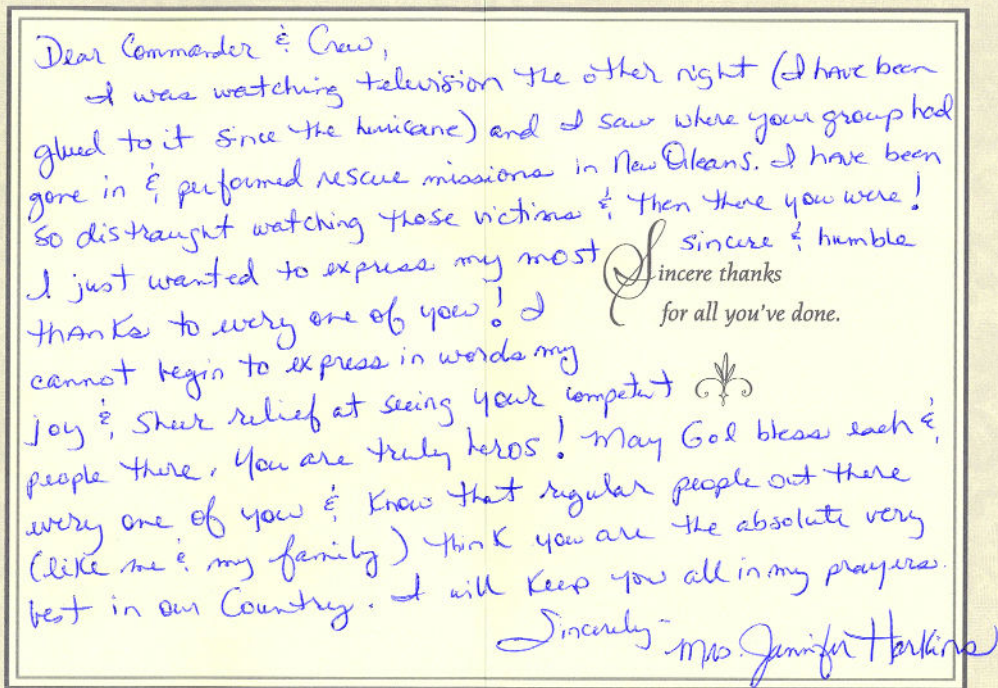 Dear Commander & Crew,
I was watching television the other night (I have been
glued to it since the hurricane) and I saw where your group had
gone in & performed rescue missions in New Orleans. I have been
so distraught watching those victims & then there you were!
I just wanted to express my most sincere & humble
Sincere thanks
for all you've done.
thanks to every one of you! I
cannot begin to express in words my
joy & sheer relief at seeing your competent
people there. You are truly heros! May God bless each &
every one of you & know that regular people out there
(like me & my family) think you are the absolute very
best in our Country. I will keep you all in my prayers.
Sincerely-
Mrs. Jennifer Harkins